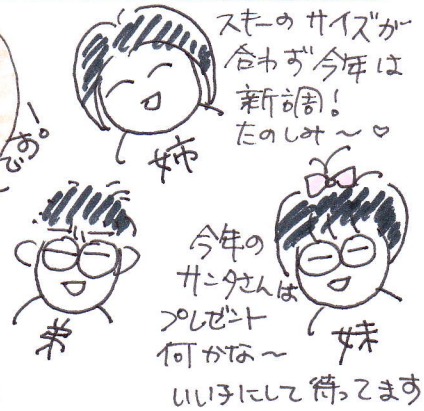 スキーのサイズが
合わず今年は
新調!
たのしみ～♡
です。!
姉
今年の
サンタさんは
プレゼント
何かな～
いい子にして待ってます
弟
妹